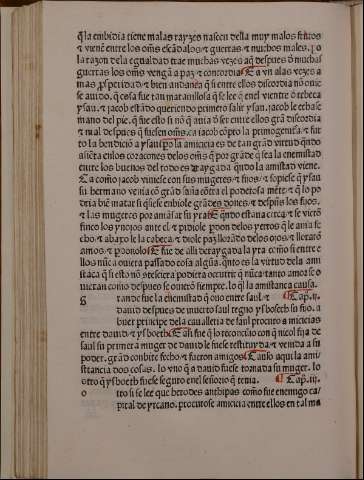 q̃ la embidia tiene malas rayzes nascen della muy malos fructos
⁊ vienẽ entre los om̃s escãdalos ⁊ guerras ⁊ muchos males. Po
la razon dela egualdad trae muchas vezes aq̃ despues ð muchas
guerras los om̃s vengã a paz ⁊ concordia ¶ E avn alas vezes a
mas ꝓsperidad ⁊ bien andança q̃ si entre ellos discordia nõ ouie
se auido. q̃ cosa fue tan marauillosa q̃ se lee q̃ enel vientre ð rebeca
⁊ sau. ⁊ jacob estãdo queriendo primero salir ysau. jacob le echase
mano del pie. q̃ fue esto si nõ q̃ auia ð ser entre ellos grã discordia
⁊ mal despues q̃ fuesen om̃s. ca jacob cõpro la primogenita. ⁊ fur
to la bendiciõ a ysau ꝑo la amicicia es de tan grãd virtud qndo
assiẽta enlos coraçones delos om̃s q̃ por grãde q̃ sea la enemistad
entre los buenos del todo es rraygada qndo la amistad viene.
Ca como jacob viniese con sus mugeres ⁊ fijos. ⁊ sopiese q̃ ysau
su hermano venia cõ grãd saña cõtra el poderosa mẽte. ⁊ q̃ lo po
dria biẽ matar si q̃siese embiole grãdes dones. ⁊ despues los fijos.
⁊ las mugeres por amãsar su yra ¶ E qndo estaua cerca ⁊ se viero
finco los ynojos ante el ⁊ pidiole ꝑdon delos yerros q̃ le auia fe
cho ⁊ abaxo le la cabeça ⁊ diole paz llorãdo delos ojos ⁊ llorarõ
amos. ⁊ ꝑdonolo ¶ E fue de alli derraygada la yra como si entre e
llos nũca ouiera passado cosa algũa. qnto es la virtud dela ami
staca q̃ si esto nõ ntesciera podiera occurrir q̃ nũca tanto amor se o
uiertan como despues se ouierõ siempre. lo ql̃ la amistança causa.
g rande fue la enemistad q̃ ouo entre saul ⁊ ¶ Cap̃. ii.
dauid despues de muerto saul regno ysboseth su fijo. a
buer principe dela caualleria de saul procuro a micicias
entre dauid ⁊ ysboseth ¶ E asi fue q̃ lo recõcilio con q̃ nicol fija de
saul su primera muger de dauid le fuese restituyda ⁊ venida a su
poder. grãd conbite fecho ⁊ fueron amigos ¶ E anso aqui la ami
stancia dos cosas. lo vno q̃ a dauid fuese tornada su muger. lo
otro q̃ ysboseth fuese seguro enel señorio q̃ tenia. ¶ Cap̃. iii.
o tro si se lee que herodes anthipas como fue enemigo ca
pital de yrcano. procurose amicicia entre ellos en tal ma